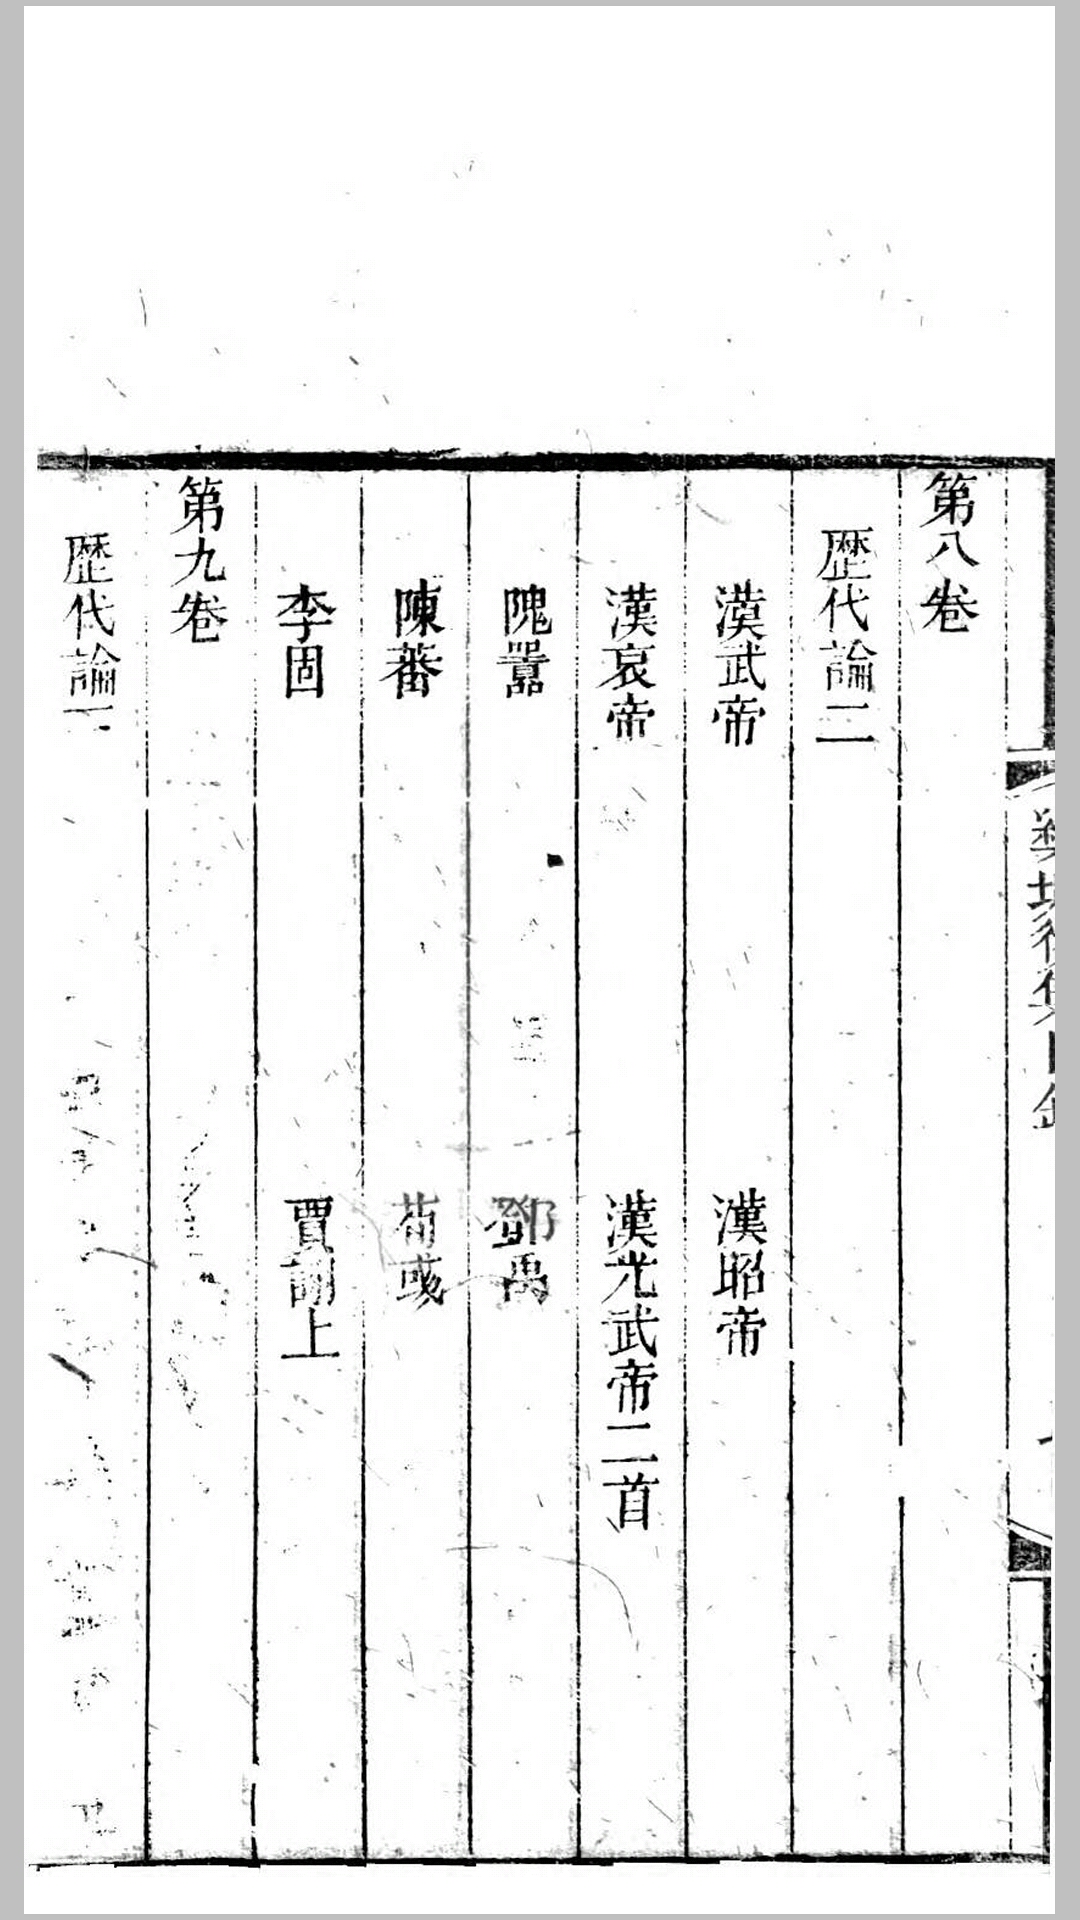 第八卷
歷代論二
漢武帝 漢昭帝
漢哀帝 漢光武帝二首
隗囂 鄧禹
陳蕃 荀彧
李固 賈詡上
第九卷
歷代論